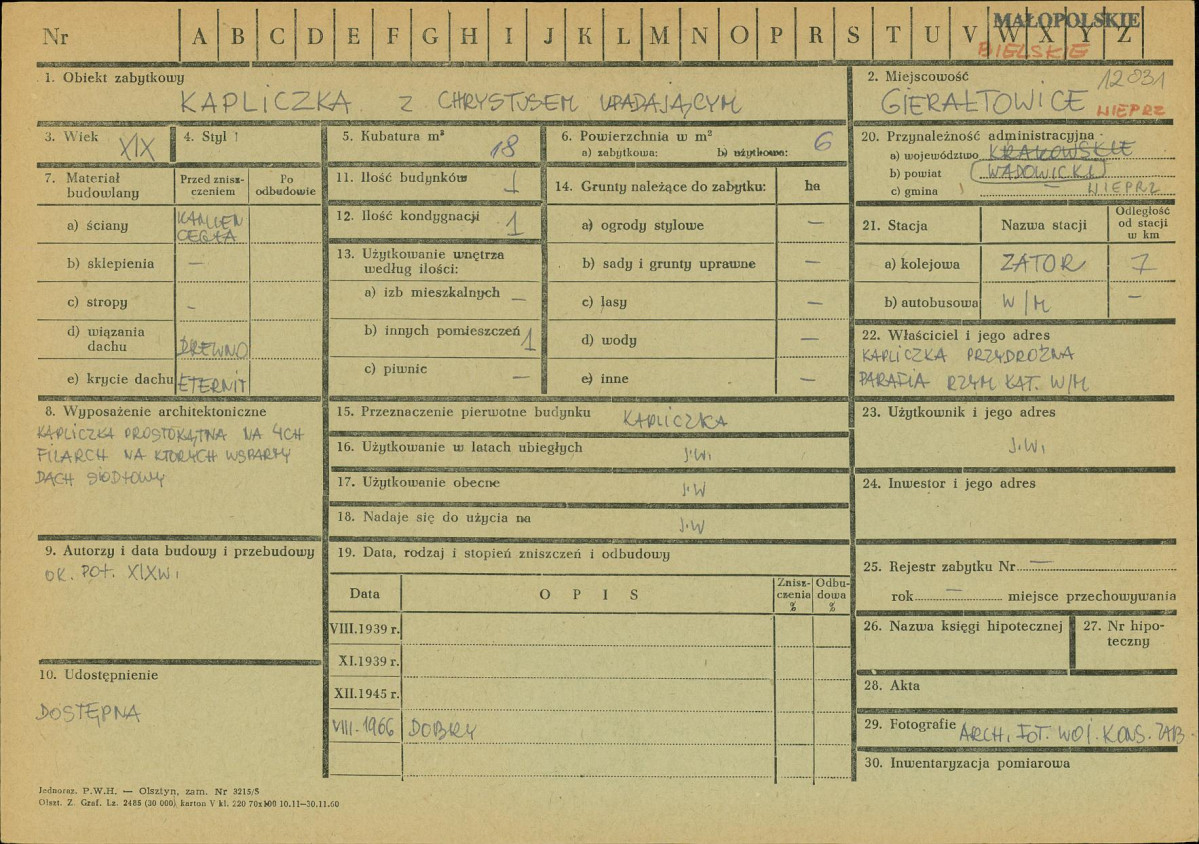 Nr A B C D E F G H I J K L M N O P R S T U V W X Y Z
MAŁOPOLSKIE
BIELSKIE
1. Obiekt zabytkowy
KAPLICZKA Z CHRYSTUSEM UPADAJĄCYM
2. Miejscowość
12031
GIERAŁTOWICE
WIEPRZ
3. Wiek XIX
4. Styl
5. Kubatura m³ 18
6. Powierzchnia w m² 6
a) zabytkowa: b) użytkowa:
7. Materiał budowlany
Przed zniszczeniem
Po odbudowie
a) ściany KAMIEŃ CEGŁA
b) sklepienia —
c) stropy —
d) wiązania dachu DREWNO
e) krycie dachu ETERNIT
8. Wyposażenie architektoniczne
KAPLICZKA PROSTOKĄTNA NA 4CH
FILARCH NA KTÓRYCH WSPARTY
DACH SIODŁOWY
9. Autorzy i data budowy i przebudowy
OK. POŁ. XIXW.
10. Udostępnienie
DOSTĘPNA
11. Ilość budynków 1
12. Ilość kondygnacji 1
13. Użytkowanie wnętrza
według ilości:
a) izb mieszkalnych —
b) innych pomieszczeń 1
c) piwnic —
14. Grunty należące do zabytku: ha
a) ogrody stylowe —
b) sady i grunty uprawne —
c) lasy —
d) wody —
e) inne —
15. Przeznaczenie pierwotne budynku KAPLICZKA
16. Użytkowanie w latach ubiegłych J.W.
17. Użytkowanie obecne J.W
18. Nadaje się do użycia na J.W
19. Data, rodzaj i stopień zniszczeń i odbudowy
Data O P I S Zniszczenia % Odbudowa %
VIII.1939 r.
XI.1939 r.
XII.1945 r.
VIII.1966 DOBRY
20. Przynależność administracyjna
a) województwo KRAKOWSKIE
b) powiat WADOWICKI
c) gmina — WIEPRZ
21. Stacja Nazwa stacji Odległość od stacji w km
a) kolejowa ZATOR 7
b) autobusowa W/M —
22. Właściciel i jego adres
KAPLICZKA PRZYDROŻNA
PARAFIA RZYM KAT. W/M
23. Użytkownik i jego adres
J.W.
24. Inwestor i jego adres
25. Rejestr zabytku Nr —
rok — miejsce przechowywania
26. Nazwa księgi hipotecznej
27. Nr hipoteczny
28. Akta
29. Fotografie ARCH. FOT. WOJ. KONS. ZAB.
30. Inwentaryzacja pomiarowa
Jednoraz. P.W.H. — Olsztyn, zam. Nr 3215/S
Olszt. Z. Graf. Lz. 2485 (30 000) karton V kl. 220 70x100 10.11—30.11.60